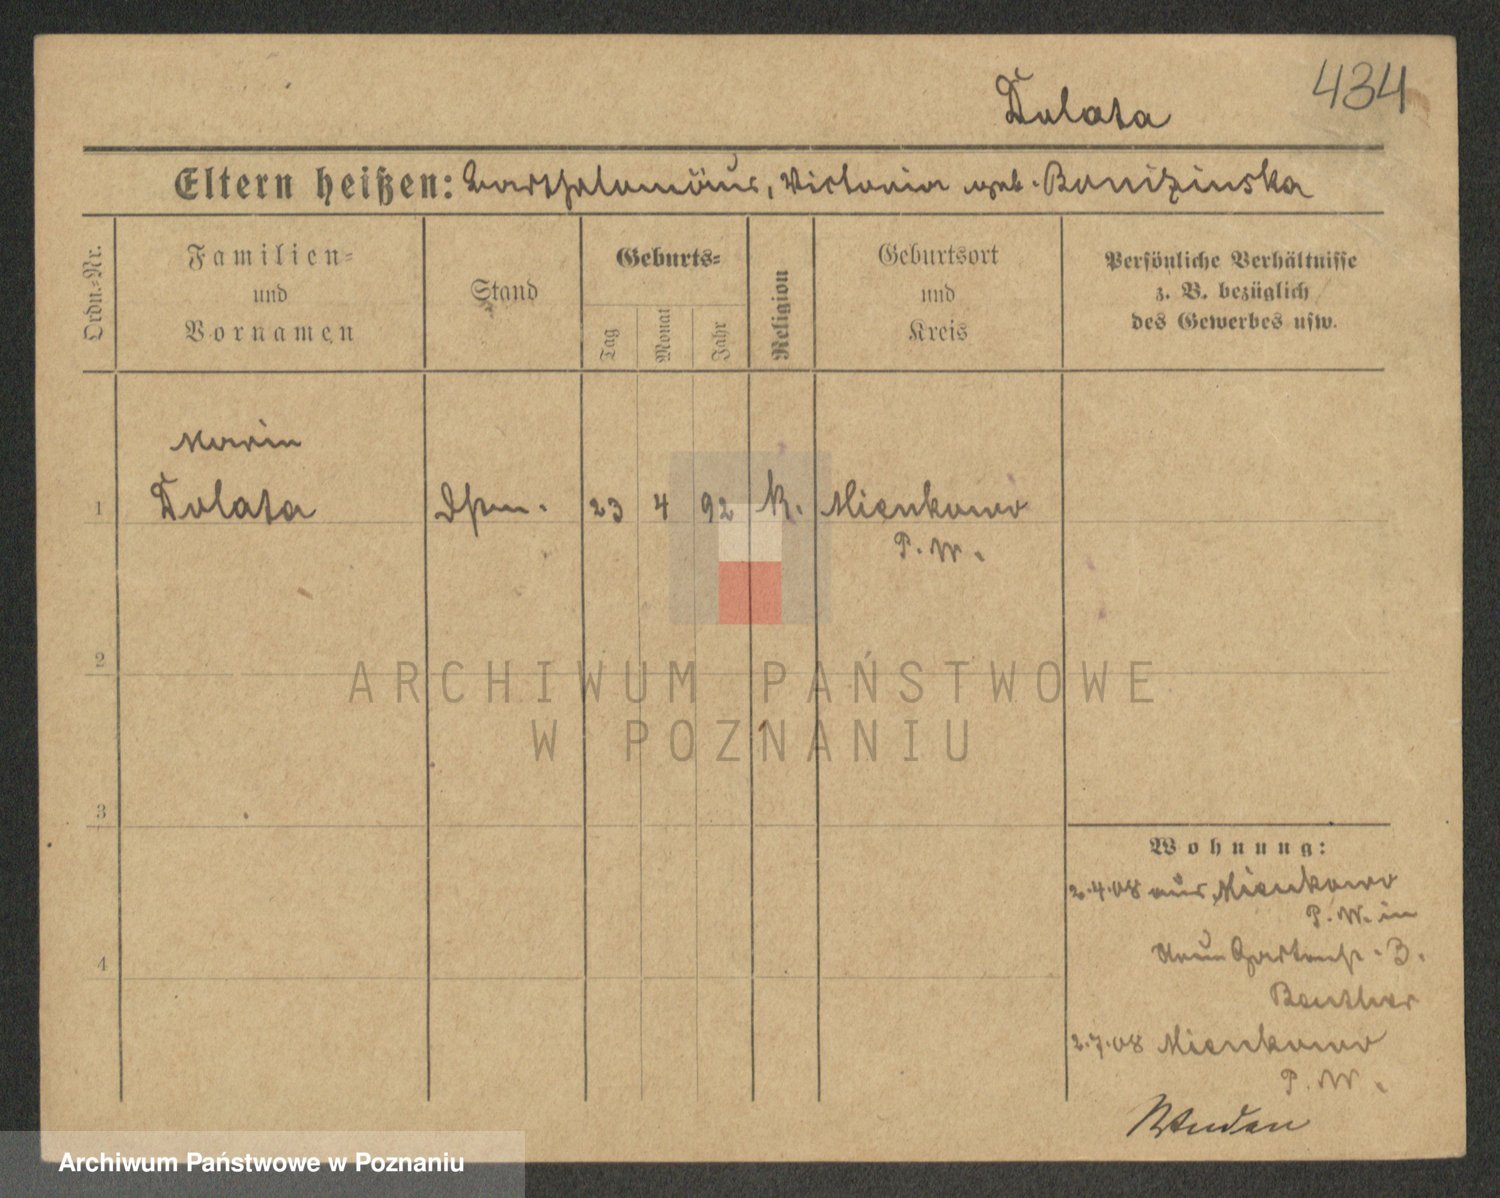 434
Dolata
Eltern heißen: Bartholomäus, Victoria geb. Bonizinska
Ordn.-Nr.
Familien-
und
Vornamen
Stand
Geburts-
Tag
Monat
Jahr
Religion
Geburtsort
und
Kreis
Persönliche Verhältnisse
z. B. bezüglich
des Gewerbes usw.
Marin
1 Dolata 23 4 92 k. Mienkowo
P. W.
2
ARCHIWUM PAŃSTWOWE
W POZNANIU
3
Wohnung:
2.4.08 aus Mienkowo
P. W. in
Gartenstr. 3.
4
2.7.08 Mienkowo
P. W.
Archiwum Państwowe w Poznaniu